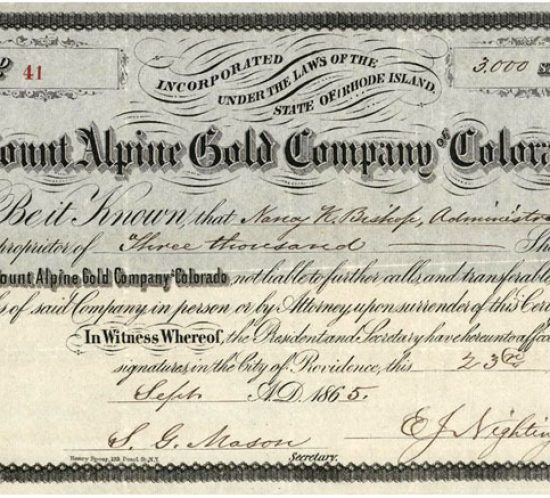 41
INCORPORATED
UNDER THE LAWS OF THE
STATE OF RHODE ISLAND.
3,000
ount Alpine Gold Company of Colora
Be it Known, that Nancy K. Bishop, Administr
proprietor of Three thousand Sh
ount Alpine Gold Company of Colorado, not liable to further calls, and transferable
s of said Company in person or by Attorney, upon surrender of this Cer
In Witness Whereof, the President and Secretary have hereunto affix
signatures in the City of Providence, this 23rd
Sept. A.D. 1865.
S. G. Mason E J Nightin
Secretary.